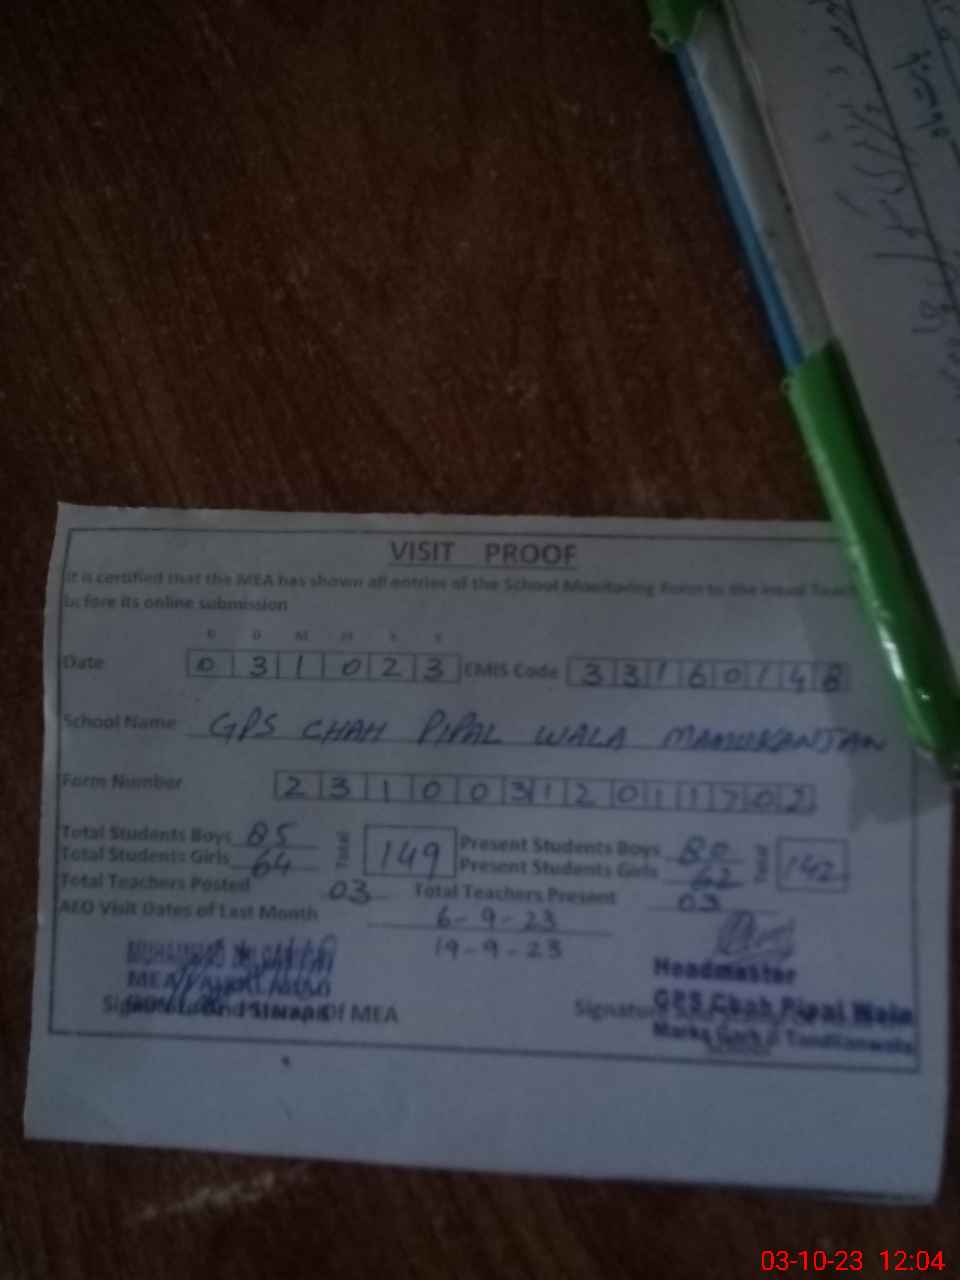 VISIT PROOF
It is certified that the MEA has shown all entries of the School Monitoring Form to the Head
before its online submission
D D M M Y Y
Date 0 3 1 0 2 3 EMIS Code 3 3 1 6 0 1 4 8
School Name GPS CHAH PIPAL WALA MAMUKANJAN
Form Number 2 3 1 0 0 3 1 2 0 1 1 7 0 2
Total Students Boys 85 Total 149 Present Students Boys 80 Total 142
Total Students Girls 64 Present Students Girls 62
Total Teachers Posted 03 Total Teachers Present 03
AEO Visit Dates of Last Month 6-9-23
19-9-23
MUHAMMAD
MEA
Signature and Stamp Of MEA
Headmaster
GPS Chah Pipal Wala
Signature
Marka Garh Tandlianwala
03-10-23 12:04